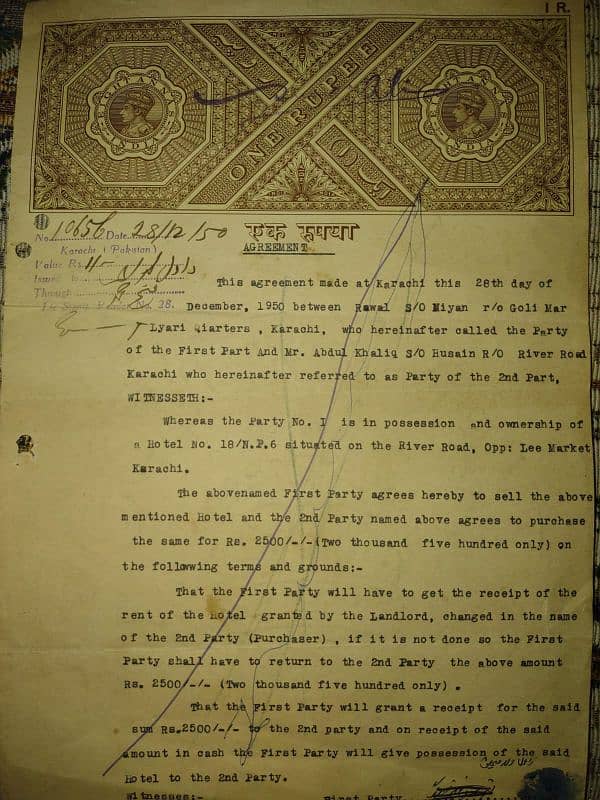 1 R.
ONE RUPEE
INDIA
No. 10656 Date 28/12/50
Karachi (Pakistan)
Value Rs.
Issued to
Through
28.
एक रुपया
AGREEMENT
This agreement made at Karachi this 28th day of
December, 1950 between Rawal S/O Miyan r/o Goli Mar
Lyari Qiarters , Karachi, who hereinafter called the Party
of the First Part And Mr. Abdul Khaliq S/O Husain R/O River Road
Karachi who hereinafter referred to as Party of the 2nd Part,
WITNESSETH:-
Whereas the Party No. I is in possession and ownership of
a Hotel No. 18/N.P.6 situated on the River Road, Opp: Lee Market
Karachi.
The abovenamed First Party agrees hereby to sell the above
mentioned Hotel and the 2nd Party named above agrees to purchase
the same for Rs. 2500/-/-(Two thousand five hundred only) on
the following terms and grounds:-
That the First Party will have to get the receipt of the
rent of the Hotel granted by the Landlord, changed in the name
of the 2nd Party (Purchaser) , if it is not done so the First
Party shall have to return to the 2nd Party the above amount
Rs. 2500/-/- (Two thousand five hundred only) .
That the First Party will grant a receipt for the said
sum Rs.2500/-/- to the 2nd party and on receipt of the said
amount in cash the First Party will give possession of the said
Hotel to the 2nd Party.
Witnesses:- First Party